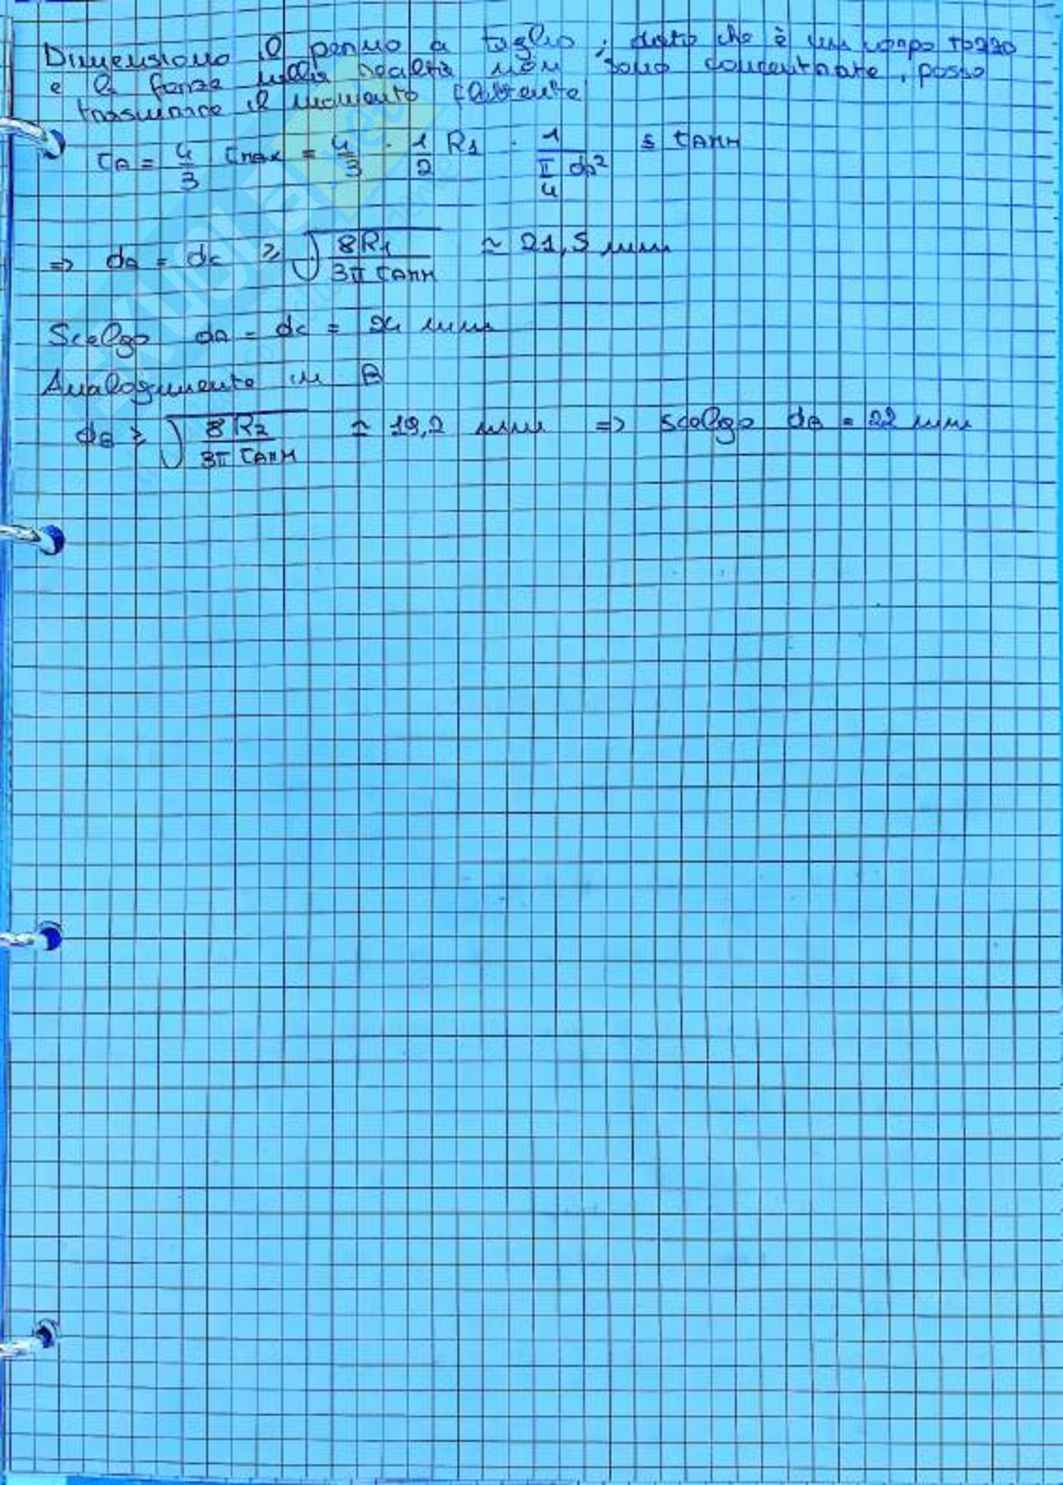 Dimensiono il perno a taglio ; dato che è un corpo tozzo
e le forze nella realtà non sono concentrate, posso
trascurare il momento flettente
τA = 4/3 τmax = 4/3 · 1/2 R1 · 1/(π/4 dA²) ≤ τAMM
=> dA = dC ≥ √(8R1/(3π τAMM)) ≃ 21,5 mm
Scelgo dA = dC = 24 mm
Analogamente in B
dB ≥ √(8R2/(3π τAMM)) ≃ 19,2 mm => scelgo dB = 22 mm